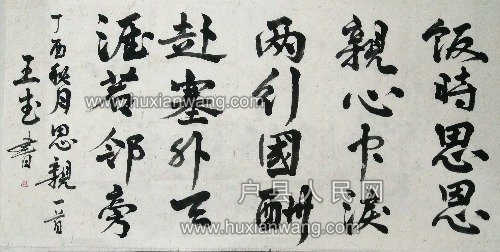 饭時思思
親心中淚
两行國酬
赴塞外天
涯若邻旁
丁酉秋月思親一首
王書
户县人民网
www.huxianwang.com
www.huxianwang.com
www.huxianwang.com